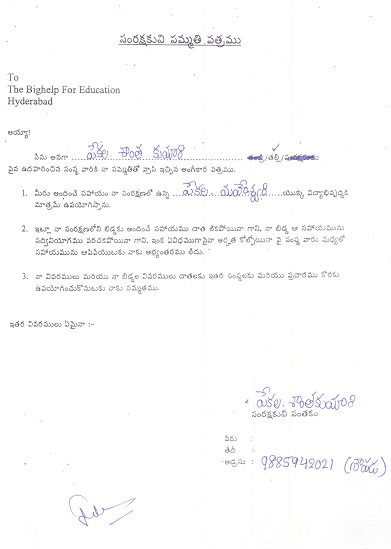 సంరక్షకుని సమ్మతి పత్రము
To
The Bighelp For Education
Hyderabad
అయ్యా!
నేను అనగా పేకల శాంత కుమారి తండ్రి/తల్లి/సంరక్షకుడు
పైన ఉదహరించిన సంస్థ వారికి నా సమ్మతితో వ్రాసి ఇచ్చిన అంగీకార పత్రము.
1. మీరు అందించే సహాయం నా సంరక్షణలో ఉన్న పేకల యొక్క విద్యాభివృద్ధికి
మాత్రమే ఉపయోగిస్తాను.
2. ఇట్లా నా సంరక్షణలోని బిడ్డకు అందించే సహాయము దాత లేకపోయినా గాని, నా బిడ్డ ఆ సహాయమును
సద్వినియోగము పరచకపోయినా గాని, ఇంక ఏవిధముగానైనా అర్హత కోల్పోయినా పై సంస్థ వారు మధ్యలో
సహాయమును ఆపివేయుటకు నాకు అభ్యంతరము లేదు.
3. నా వివరములు మరియు నా బిడ్డల వివరములు దాతలకు ఇతర సంస్థలకు మరియు ప్రచారము కొరకు
ఉపయోగించుకొనుటకు నాకు సమ్మతము.
ఇతర వివరములు ఏమైనా :-
పేకల. శాంతకుమారి
సంరక్షకుని సంతకం
పేరు :
తేదీ :
అడ్రసు : 9885942021